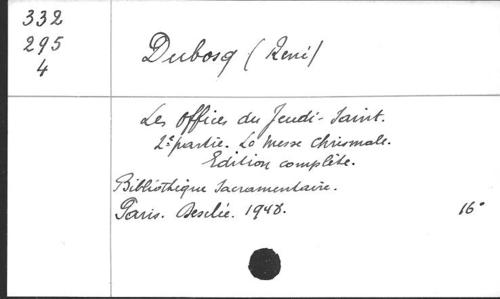 332
295
4
Dubosq (René)
Les Offices du Jeudi-Saint.
2e partie. La Messe Chrismale.
Edition complète.
Bibliothèque Sacramentaire.
Paris. Desclée. 1948. 16°